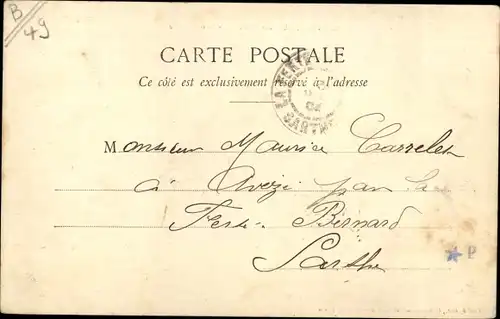 B
49
CARTE POSTALE
Ce côté est exclusivement réservé à l'adresse
LA FERTE
SARTHE
Monsieur Maurice Carrelet
à Avezé par la
Ferté-Bernard
Sarthe
P